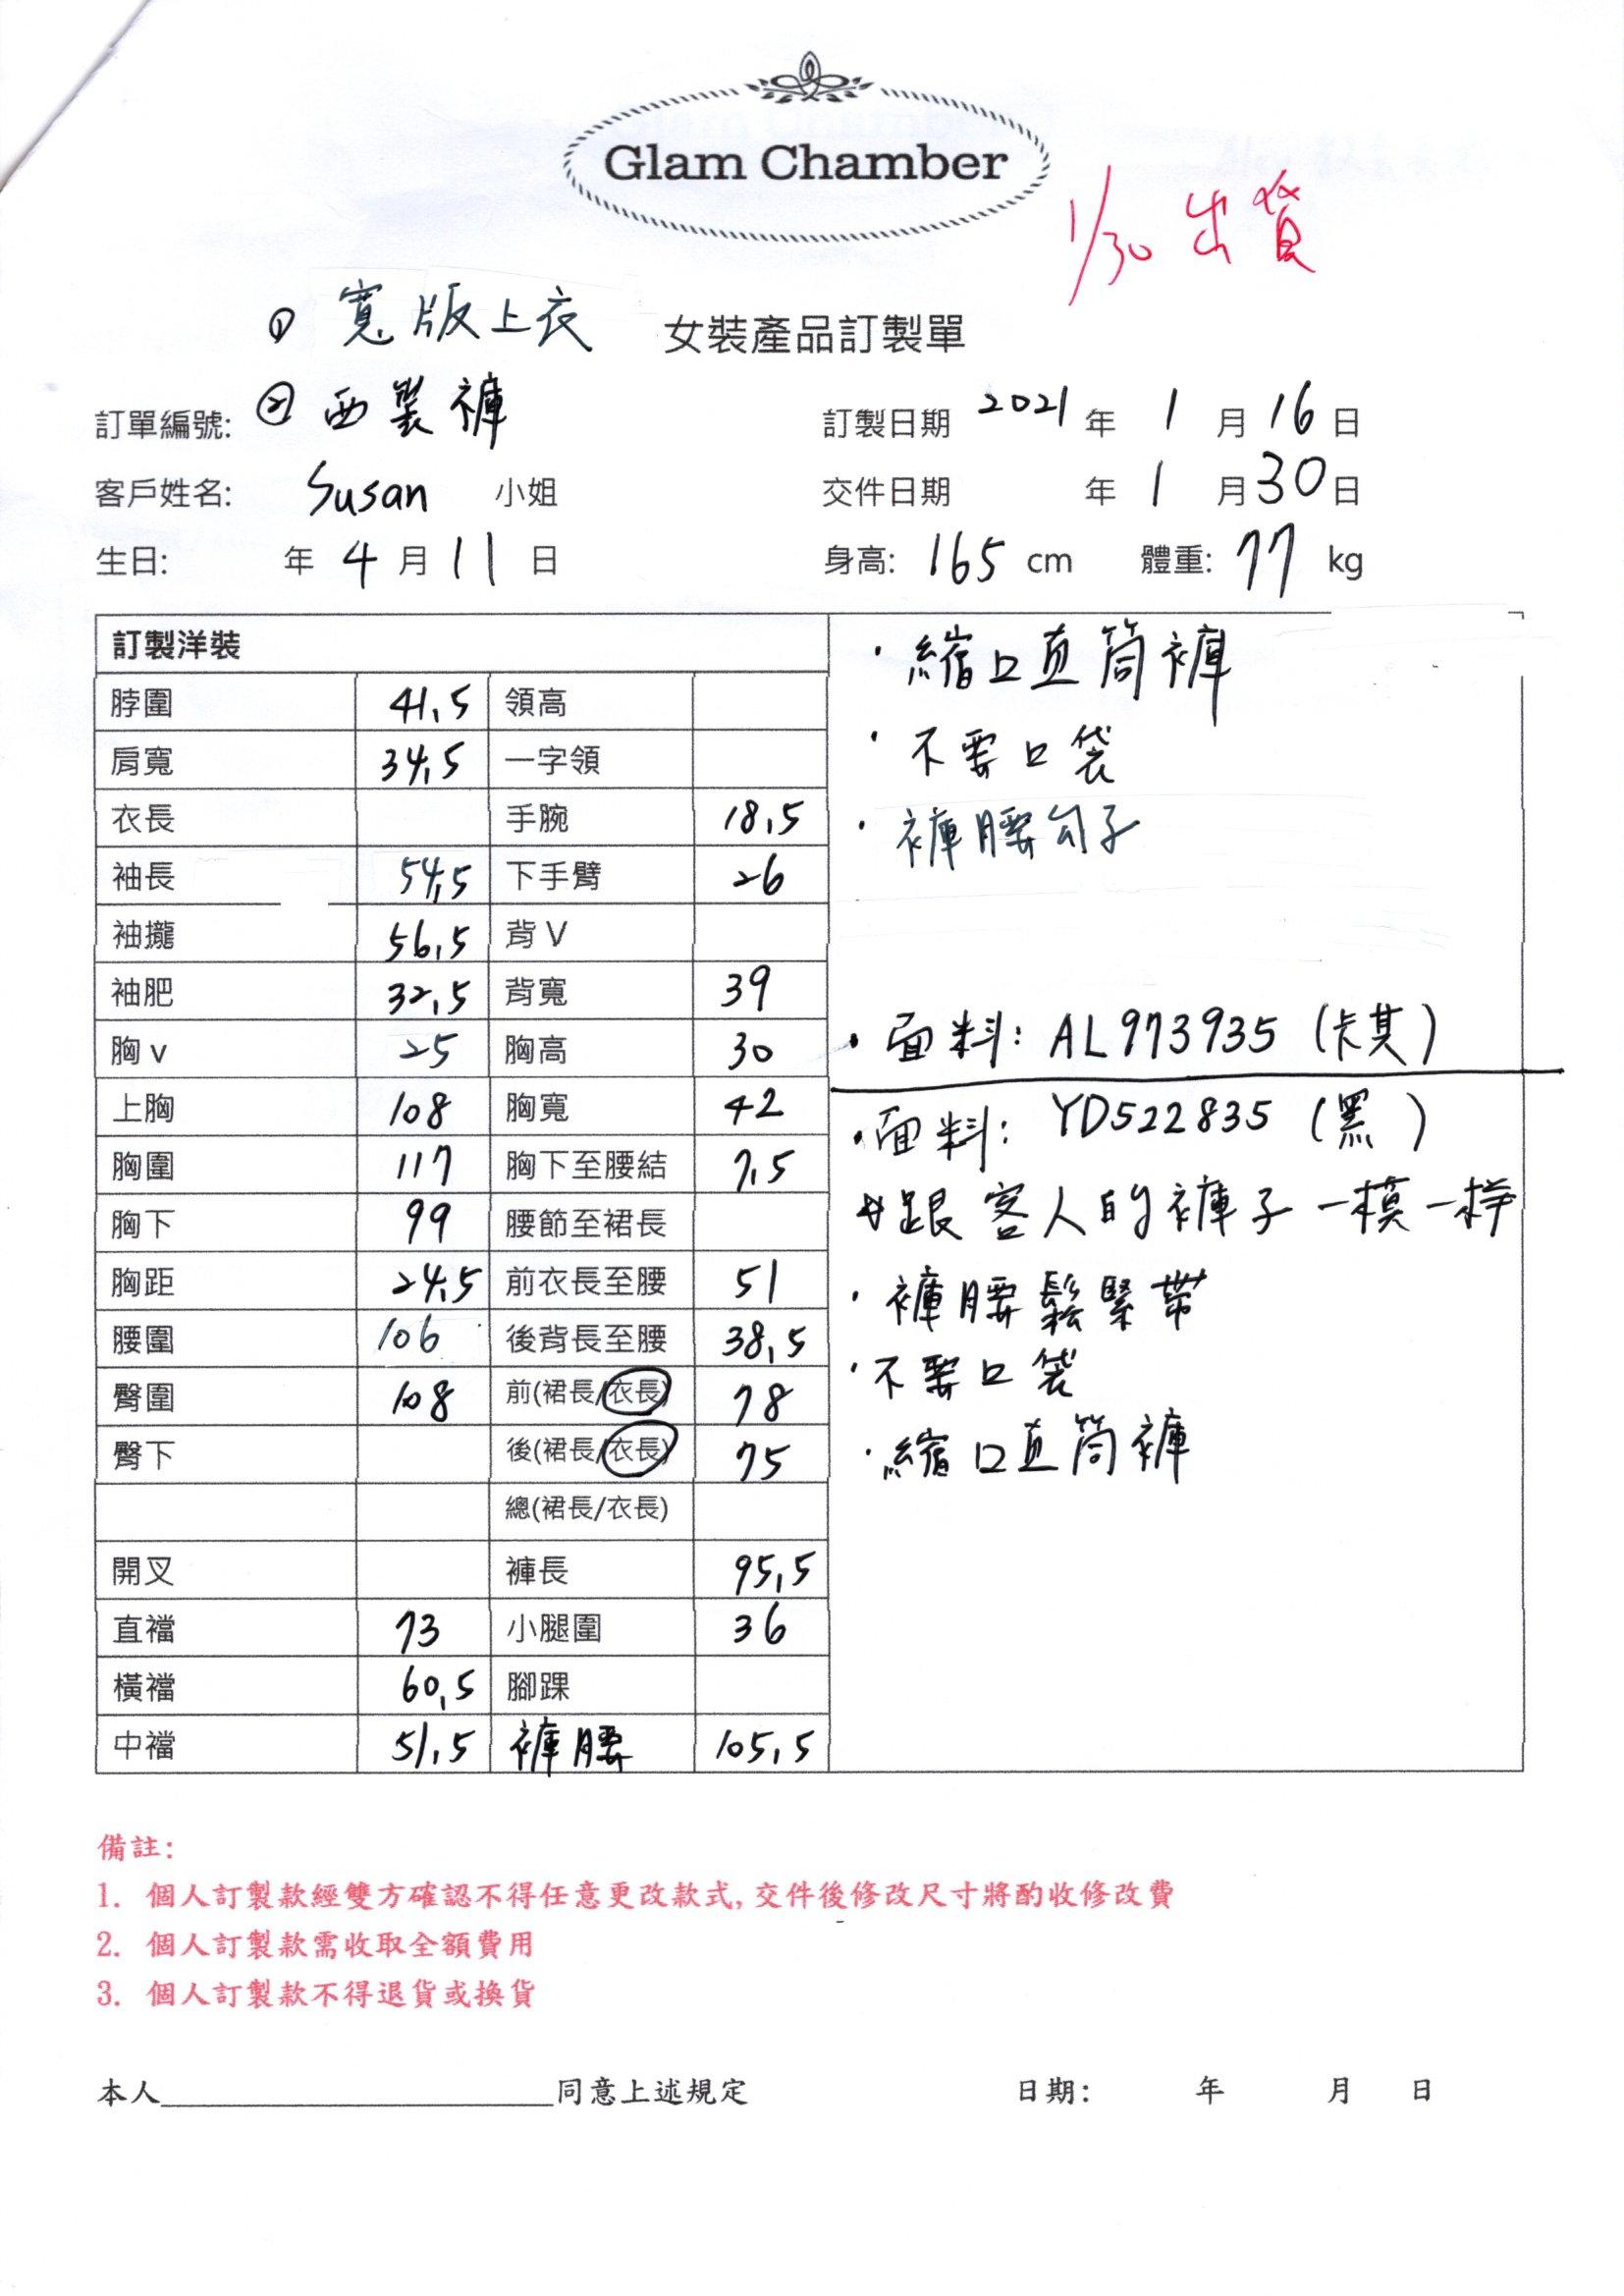 Glam Chamber
1/30 出貨
① 寬版上衣 女裝產品訂製單
訂單編號: ② 西裝褲 訂製日期 2021 年 1 月 16 日
客戶姓名: Susan 小姐 交件日期 年 1 月 30 日
生日: 年 4 月 11 日 身高: 165 cm 體重: 77 kg
訂製洋裝
脖圍 41.5 領高
肩寬 34.5 一字領
衣長 手腕 18.5
袖長 54.5 下手臂 26
袖攏 56.5 背 V
袖肥 32.5 背寬 39
胸 v 25 胸高 30
上胸 108 胸寬 42
胸圍 117 胸下至腰結 7.5
胸下 99 腰節至裙長
胸距 24.5 前衣長至腰 51
腰圍 106 後背長至腰 38.5
臀圍 108 前(裙長/衣長) 78
臀下 後(裙長/衣長) 75
總(裙長/衣長)
開叉 褲長 95.5
直襠 73 小腿圍 36
橫襠 60.5 腳踝
中襠 51.5 褲腰 105.5
·縮口直筒褲
·不要口袋
·褲腰勾子
·面料: AL973935 (卡其)
·面料: YD522835 (黑)
*跟客人的褲子一模一樣
·褲腰鬆緊帶
·不要口袋
·縮口直筒褲
備註:
1. 個人訂製款經雙方確認不得任意更改款式,交件後修改尺寸將酌收修改費
2. 個人訂製款需收取全額費用
3. 個人訂製款不得退貨或換貨
本人____________________同意上述規定 日期: 年 月 日